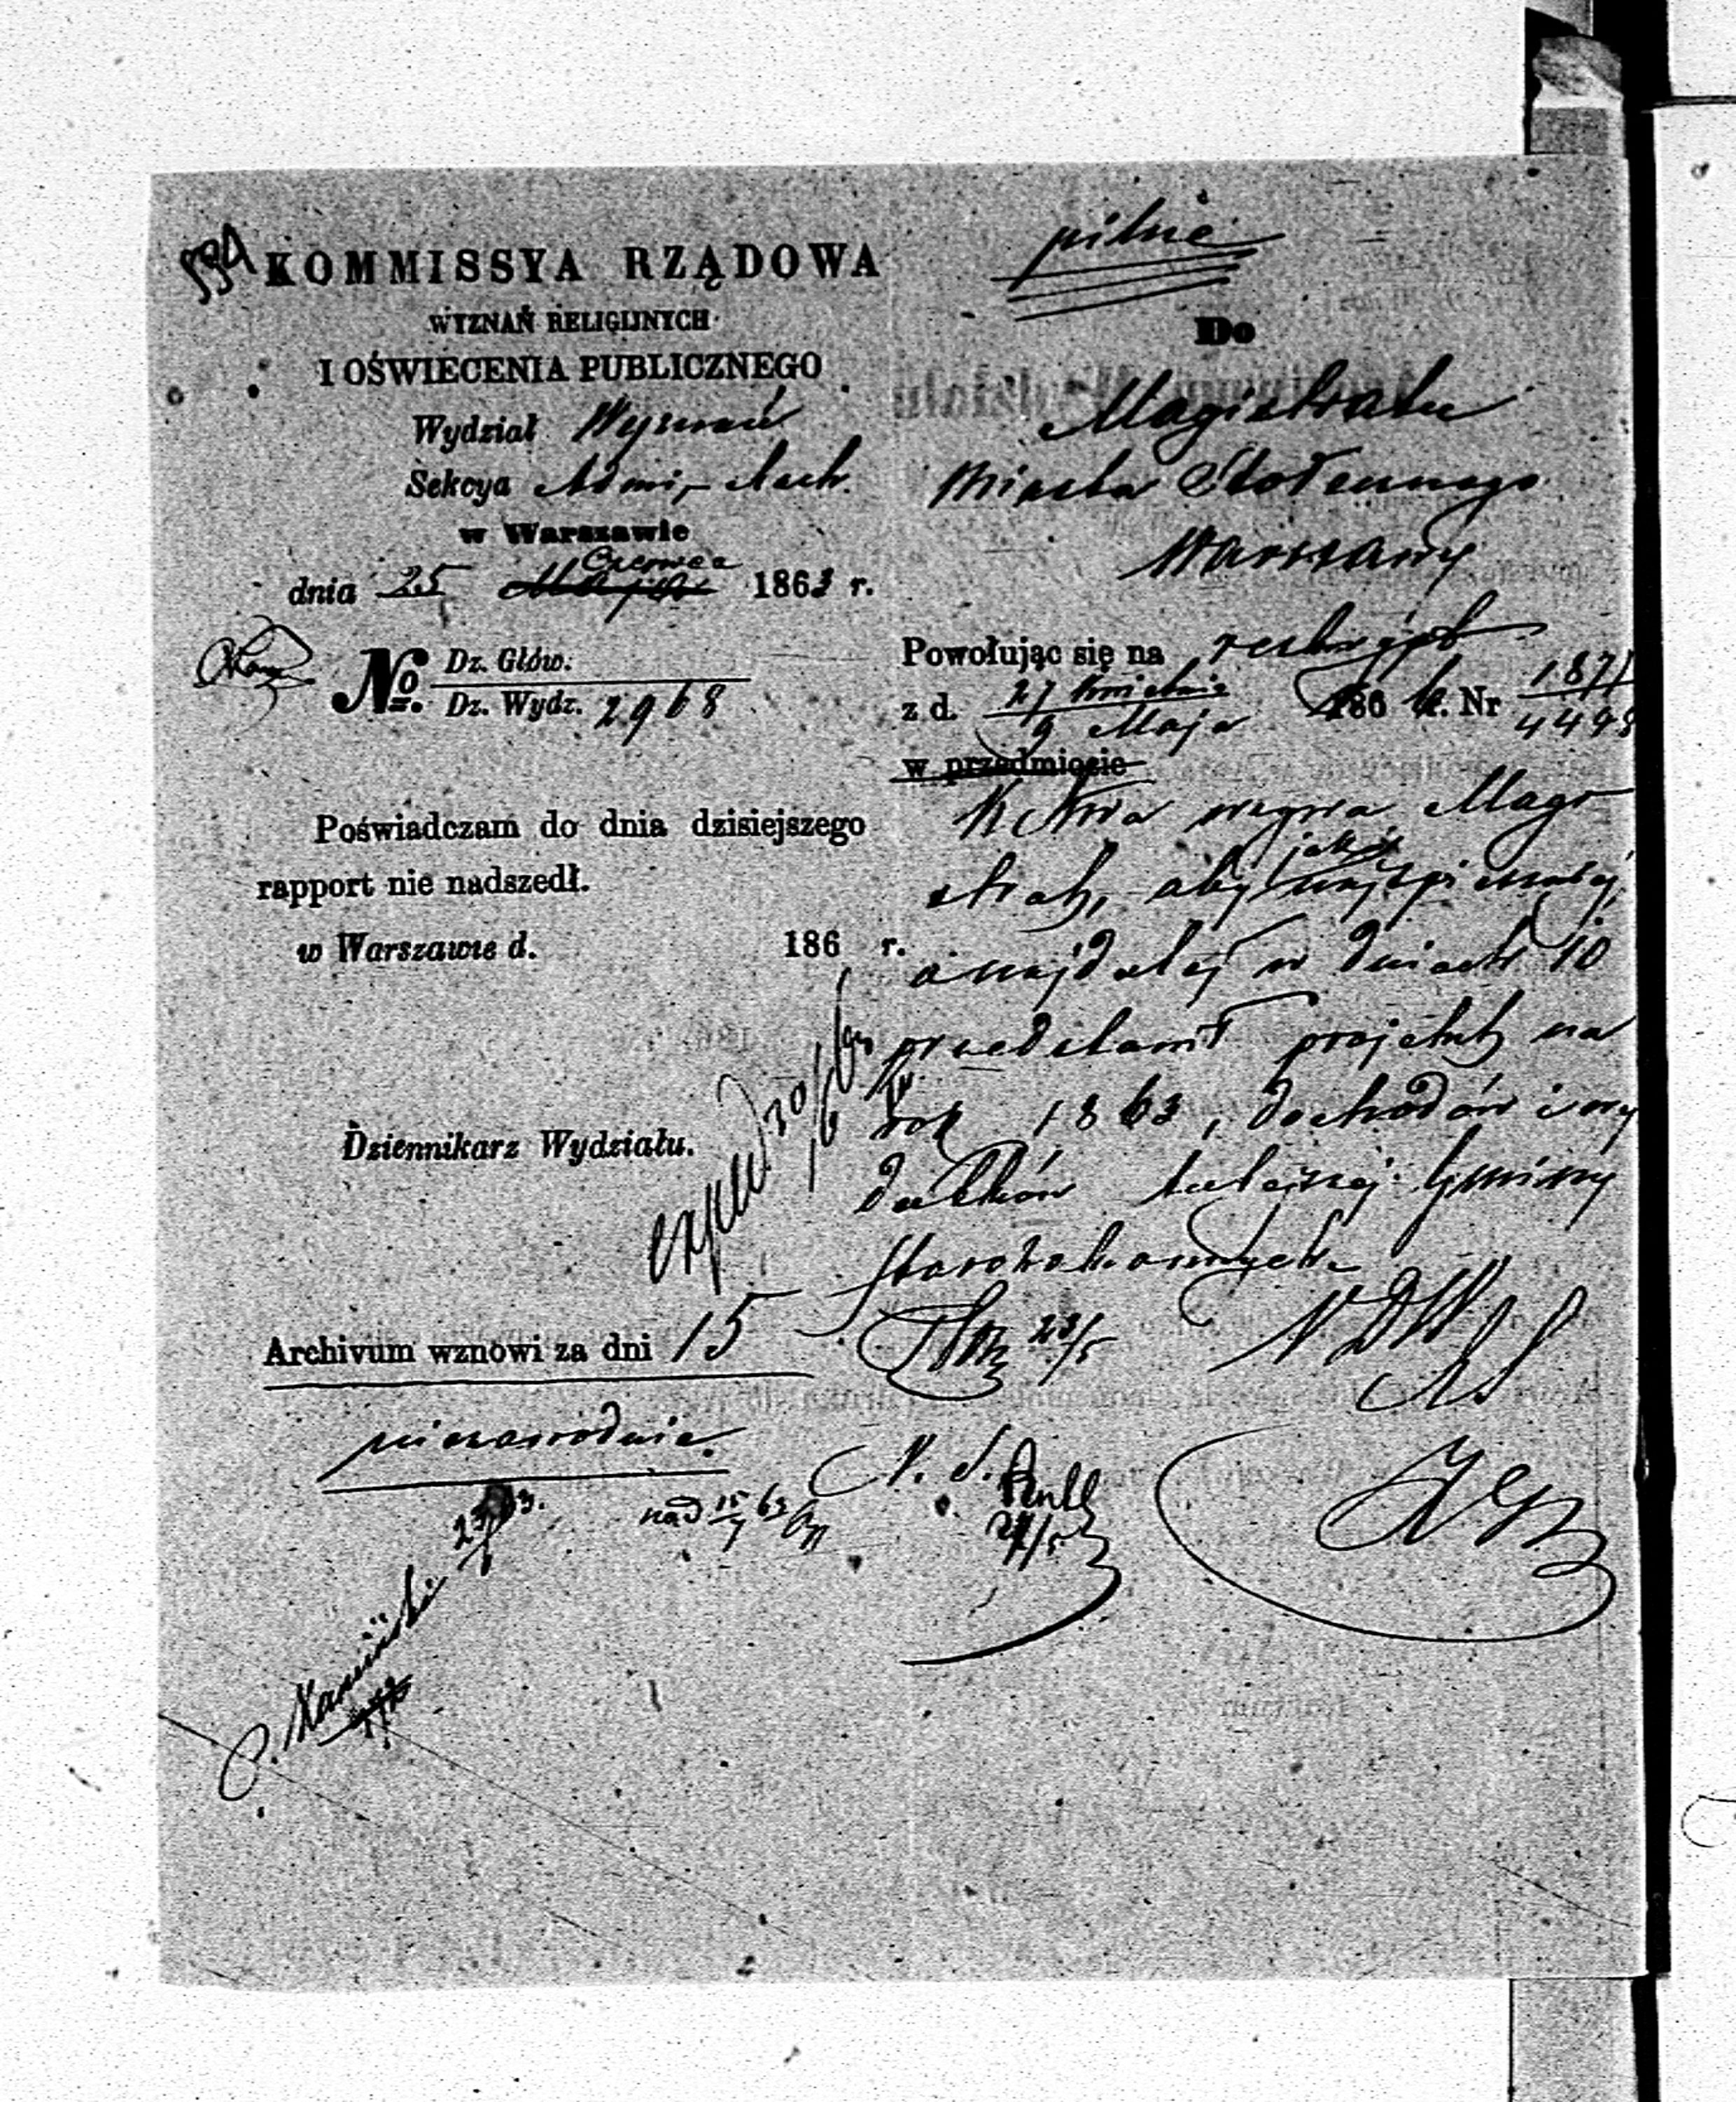 534
KOMMISSYA RZĄDOWA
WYZNAŃ RELIGIJNYCH
I OŚWIECENIA PUBLICZNEGO
Wydział Wyznań
Sekcya Admi, Rach.
w Warszawie
Czerwca
dnia 25 Maja 1863 r.
No. Dz. Głów.
Dz. Wydz. 2968
Poświadczam do dnia dzisiejszego
rapport nie nadszedł.
w Warszawie d. 186 r.
Dziennikarz Wydziału.
exped 30/6 63
Archivum wznowi za dni 15
niezawodnie.
nad 15/7 63
pilne
Do
Magistratu
Miasta Stołecznego
Warszawy
Powołując się na reskrypt
z d. 27 Kwietnia 186 r. Nr 1871
9 Maja 4498
w przedmiocie
wzywa Magi-
strat, aby jak najspieszniej,
a najdalej w dniach 10
przedstawił projekt na
rok 1863, dochodów i wy
datków tutejszej Gminy
Starozakonnych
23/5
N D W
N. S.
24/5